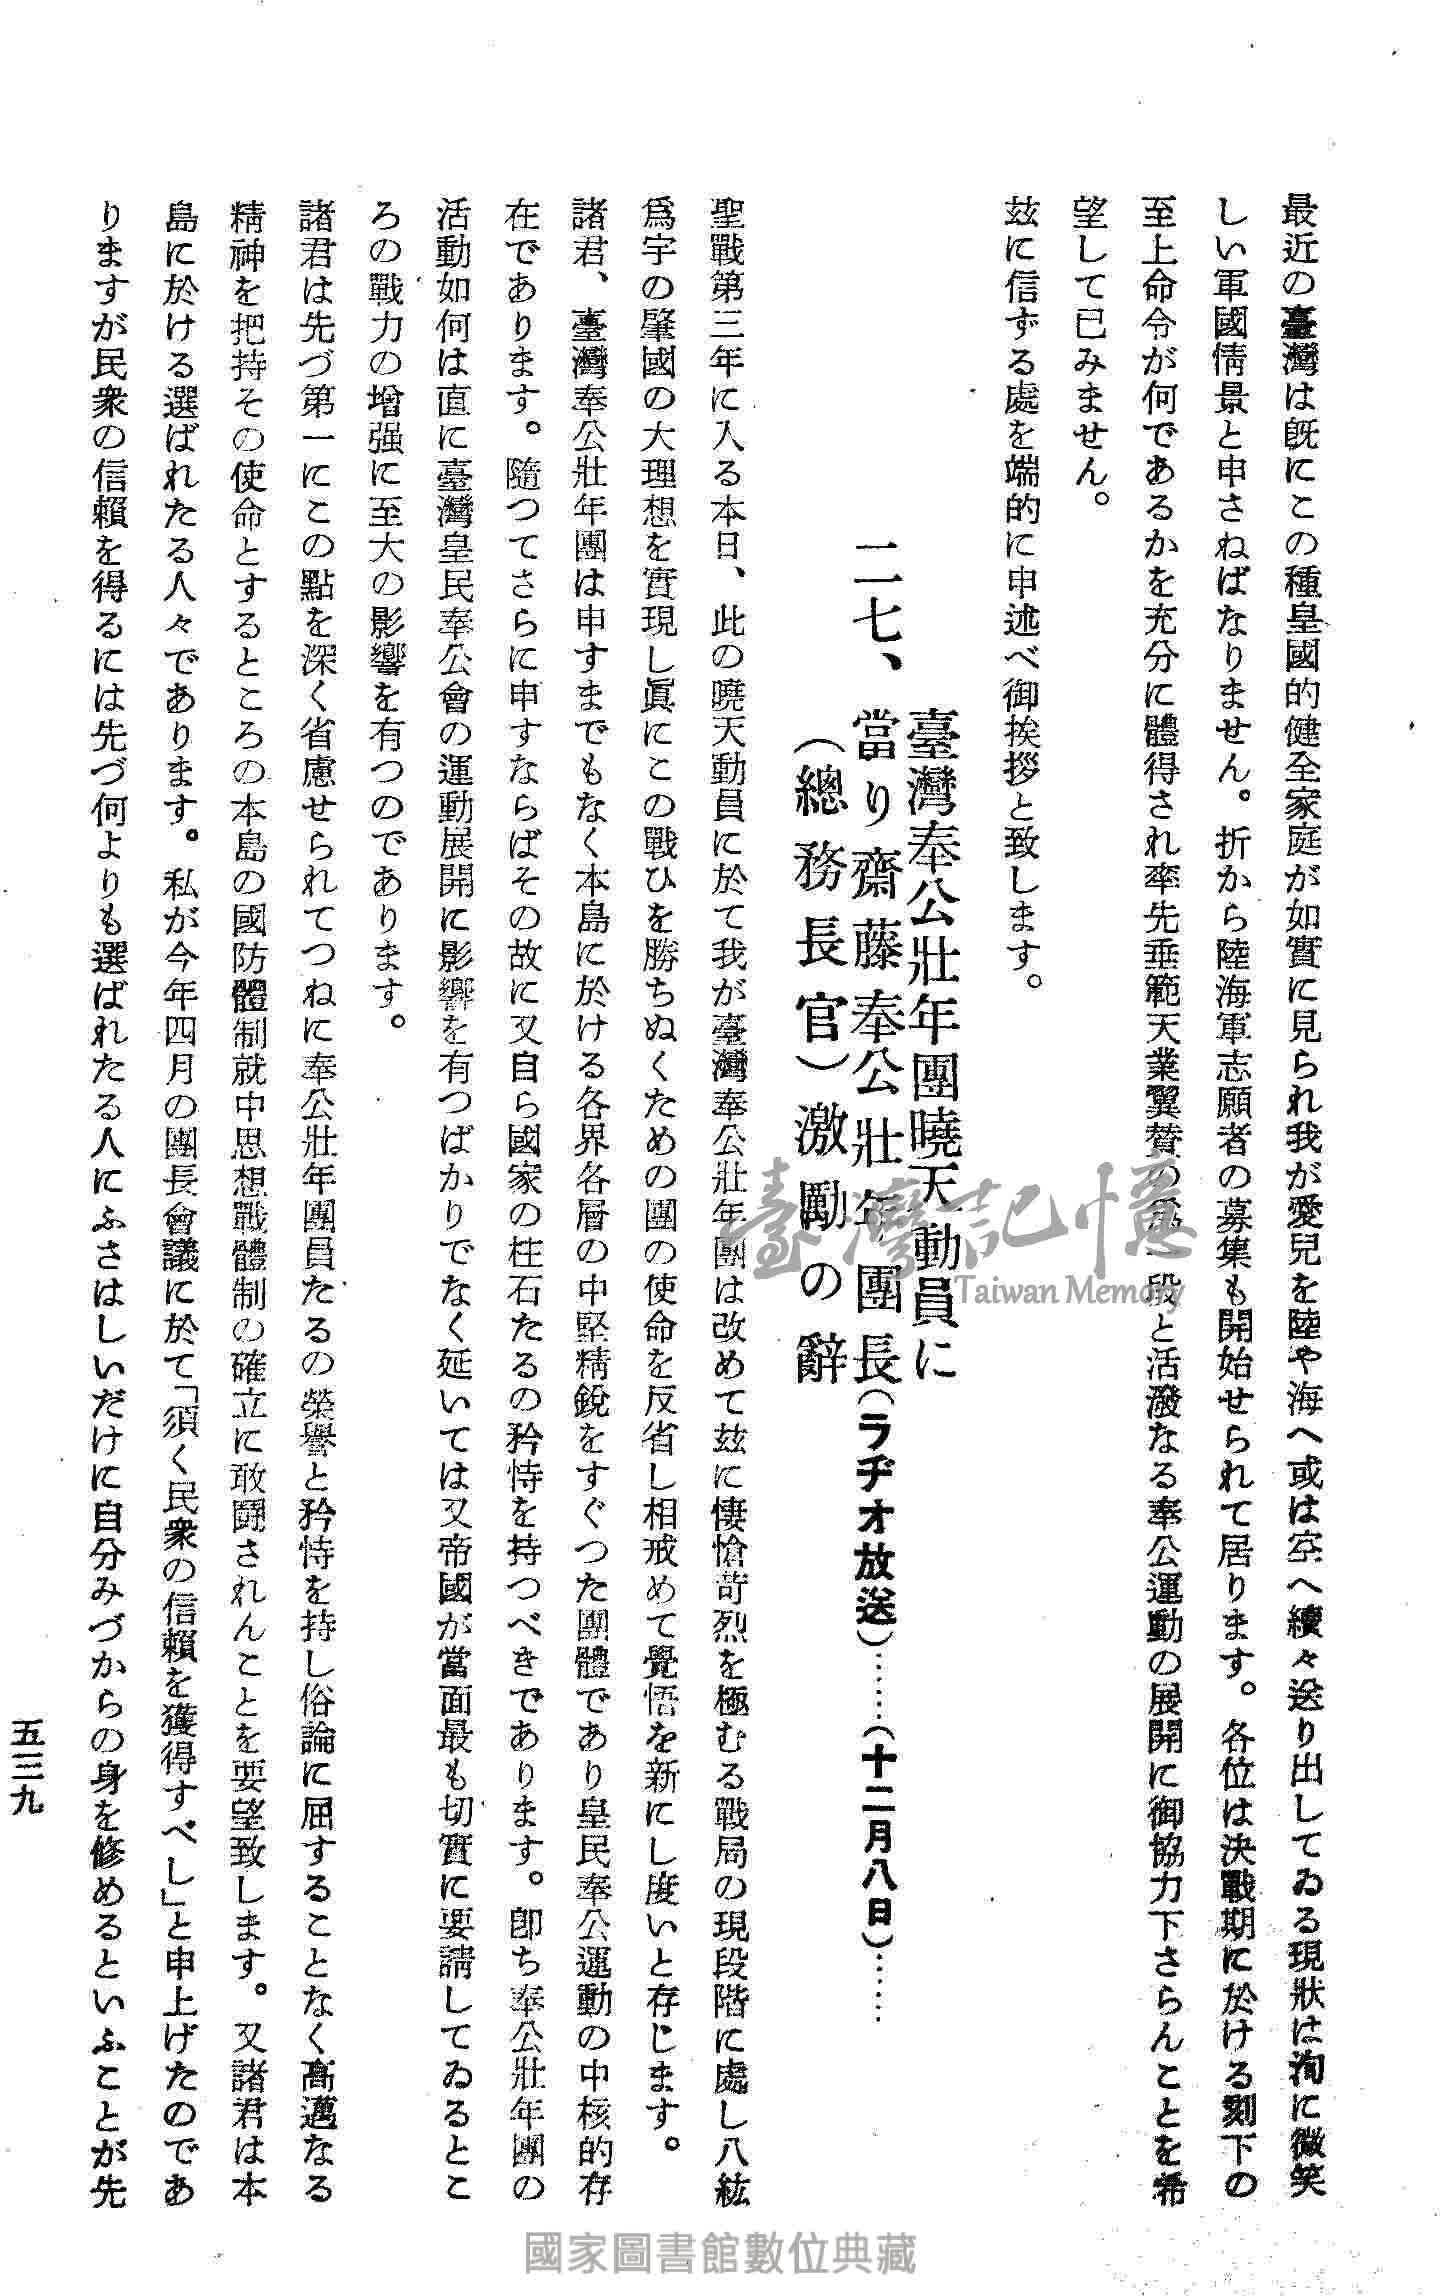 最近の臺灣は旣にこの種皇國的健全家庭が如實に見られ我が愛兒を陸や海へ或は空へ續々送り出してゐる現狀は洵に微笑
しい軍國情景と申さねばなりません。折から陸海軍志願者の募集も開始せられて居ります。各位は決戰期に於ける刻下の
至上命令が何であるかを充分に體得され率先垂範天業翼贊の爲一段と活潑なる奉公運動の展開に御協力下さらんことを希
望して已みません。
玆に信ずる處を端的に申述べ御挨拶と致します。
二七、臺灣奉公壯年團曉天動員に
當り齋藤奉公壯年團長(ラヂオ放送)……(十二月八日)……
(總務長官)激勵の辭
聖戰第三年に入る本日、此の曉天動員に於て我が臺灣奉公壯年團は改めて玆に悽愴苛烈を極むる戰局の現段階に處し八紘
爲宇の肇國の大理想を實現し眞にこの戰ひを勝ちぬくための團の使命を反省し相戒めて覺悟を新にし度いと存じます。
諸君、臺灣奉公壯年團は申すまでもなく本島に於ける各界各層の中堅精銳をすぐつた團體であり皇民奉公運動の中核的存
在であります。隨つてさらに申すならばその故に又自ら國家の柱石たるの矜恃を持つべきであります。卽ち奉公壯年團の
活動如何は直に臺灣皇民奉公會の運動展開に影響を有つばかりでなく延いては又帝國が當面最も切實に要請してゐるとこ
ろの戰力の增强に至大の影響を有つのであります。
諸君は先づ第一にこの點を深く省慮せられてつねに奉公壯年團員たるの榮譽と矜恃を持し俗論に屈することなく高邁なる
精神を把持その使命とするところの本島の國防體制就中思想戰體制の確立に敢鬪されんことを要望致します。又諸君は本
島に於ける選ばれたる人々であります。私が今年四月の團長會議に於て「須く民衆の信賴を獲得すべし」と申上げたのであ
りますが民衆の信賴を得るには先づ何よりも選ばれたる人にふさはしいだけに自分みづからの身を修めるといふことが先
五三九
臺灣記憶
Taiwan Memory
國家圖書館數位典藏